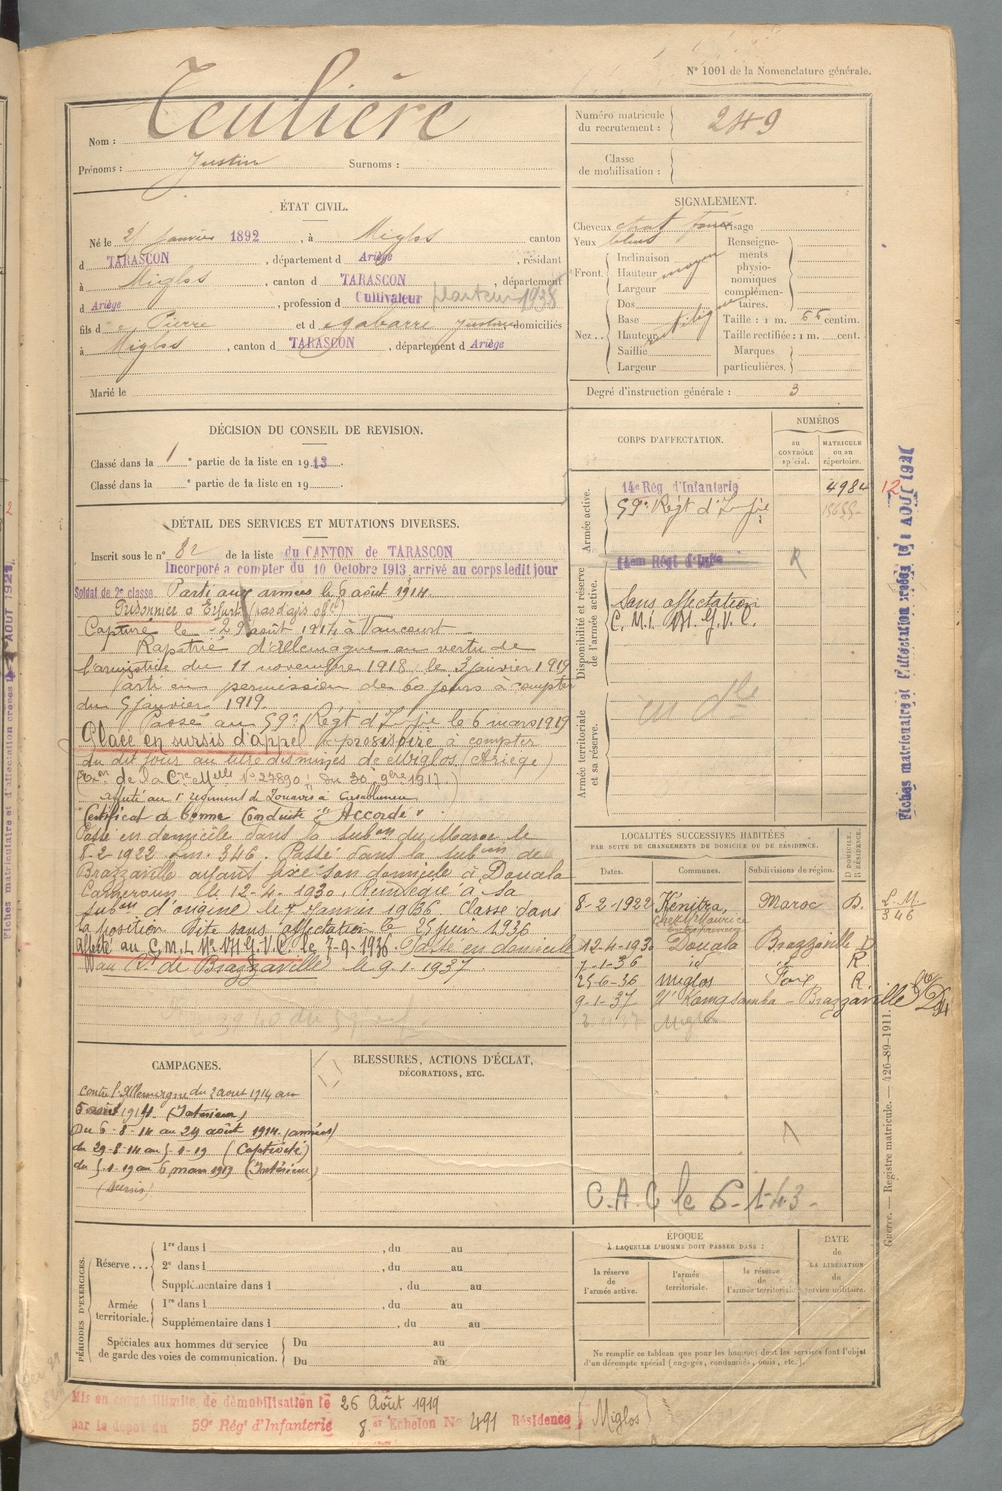 N° 1001 de la Nomenclature générale.
Nom : Teulière
Prénoms : Justin Surnoms :
Numéro matricule du recrutement : 249
Classe de mobilisation :
ÉTAT CIVIL.
Né le 2 janvier 1892, à Miglos canton
d TARASCON, département d Ariège, résidant
à Miglos, canton d TARASCON, département
d Ariège, profession d Cultivateur planteur 1938
fils d e Pierre et d Justine domiciliés
à Miglos, canton d TARASCON, département d Ariège
Marié le
SIGNALEMENT.
Cheveux chat foncé Visage
Yeux bleus
Front. Inclinaison
Hauteur moyen
Largeur
Nez... Dos
Base
Hauteur
Saillie
Largeur
Renseignements physionomiques complémentaires.
Taille : 1 m. 65 centim.
Taille rectifiée : 1 m. cent.
Marques particulières.
Degré d'instruction générale : 3
DÉCISION DU CONSEIL DE REVISION.
Classé dans la 1e partie de la liste en 1913.
Classé dans la e partie de la liste en 19
DÉTAIL DES SERVICES ET MUTATIONS DIVERSES.
Inscrit sous le n° 82 de la liste du CANTON de TARASCON
Incorporé a compter du 10 Octobre 1913 arrivé au corps ledit jour
Soldat de 2e classe. Parti aux armées le 6 août 1914.
Prisonnier à Erfurt
Capturé le 29 août 1914 à Vaucourt
Rapatrié d'Allemagne en vertu de
l'armistice du 11 novembre 1918, le 3 janvier 1919
Parti en permission de 60 jours à compter
du 5 janvier 1919.
Passé au 59e Régt d'Infie le 6 mars 1919
Placé en sursis d'appel provisoire à compter
du dit jour au titre des mines de Miglos (Ariège)
de la Cre Melle N° 27890 du 30 9bre 1917)
affecté au 1er régiment de Zouaves à Casablanca
"Certificat de bonne Conduite" "Accordé".
Passé en domicile dans la subon du Maroc le
8-2-1922 L.m. 346. Passé dans la subon de
Brazzaville ayant fixé son domicile à Douala
Cameroun le 12-4-1930. Réintégré à sa
subon d'origine le 7 Janvier 1936 Classé dans
la position dite sans affectation le 25 juin 1936
Affecté au C.M.I. N° VII G.V.C. le 7-9-1936. Passé en domicile
au de Brazzaville le 9-1-1937.
CORPS D'AFFECTATION.
NUMÉROS
au CONTRÔLE spécial.
MATRICULE ou au répertoire.
Armée active.
14e Rég d'Infanterie 4984
59e Régt d'Infie
Disponibilité et réserve de l'armée active.
14em Régt d'Infie R
Sans affectation
C.M.I. VII G.V.C.
Armée territoriale et sa réserve.
en dle
LOCALITÉS SUCCESSIVES HABITÉES
PAR SUITE DE CHANGEMENTS DE DOMICILE OU DE RÉSIDENCE.
Dates. Communes. Subdivisions de région. D DOMICILE. R RÉSIDENCE.
8-2-1922 Kénitra Maroc D. L.M. 346
12-4-1930 Douala Brazzaville D
7-1-36 id R.
25-6-36 Miglos Foix R
9-1-37 N'Kongsamba - Brazzaville
Miglos
C.A.C le 6-1-43-
CAMPAGNES.
Contre l'Allemagne du 2 août 1914 au
5 août 1914. (Intérieur)
Du 6-8-14 au 29 août 1914. (armées)
du 29-8-14 au 5-1-19 (Captivité)
du 5-1-19 au 6 mars 1919 (Intérieur)
(sursis)
BLESSURES, ACTIONS D'ÉCLAT,
DÉCORATIONS, ETC.
PÉRIODES D'EXERCICES.
Réserve.... 1re dans l , du au
2e dans l , du au
Supplémentaire dans l , du au
Armée territoriale. 1re dans l , du au
Supplémentaire dans l , du au
Spéciales aux hommes du service de garde des voies de communication. Du au
Du au
ÉPOQUE
À LAQUELLE L'HOMME DOIT PASSER DANS :
la réserve de l'armée active.
l'armée territoriale.
la réserve de l'armée territoriale.
DATE de LA LIBÉRATION du service militaire.
Ne remplir ce tableau que pour les hommes dont les services font l'objet
d'un décompte spécial (engagés, condamnés, omis, etc.).
Mis en congé illimité de démobilisation le 26 Août 1919
par le dépôt du 59e Rég d'Infanterie 8 er Echelon No 491 Résidence Miglos
Guerre. — Registre matricule. — 426-89-1911.
Fiches matriculaire et d'affectation créées le AOUT 1921